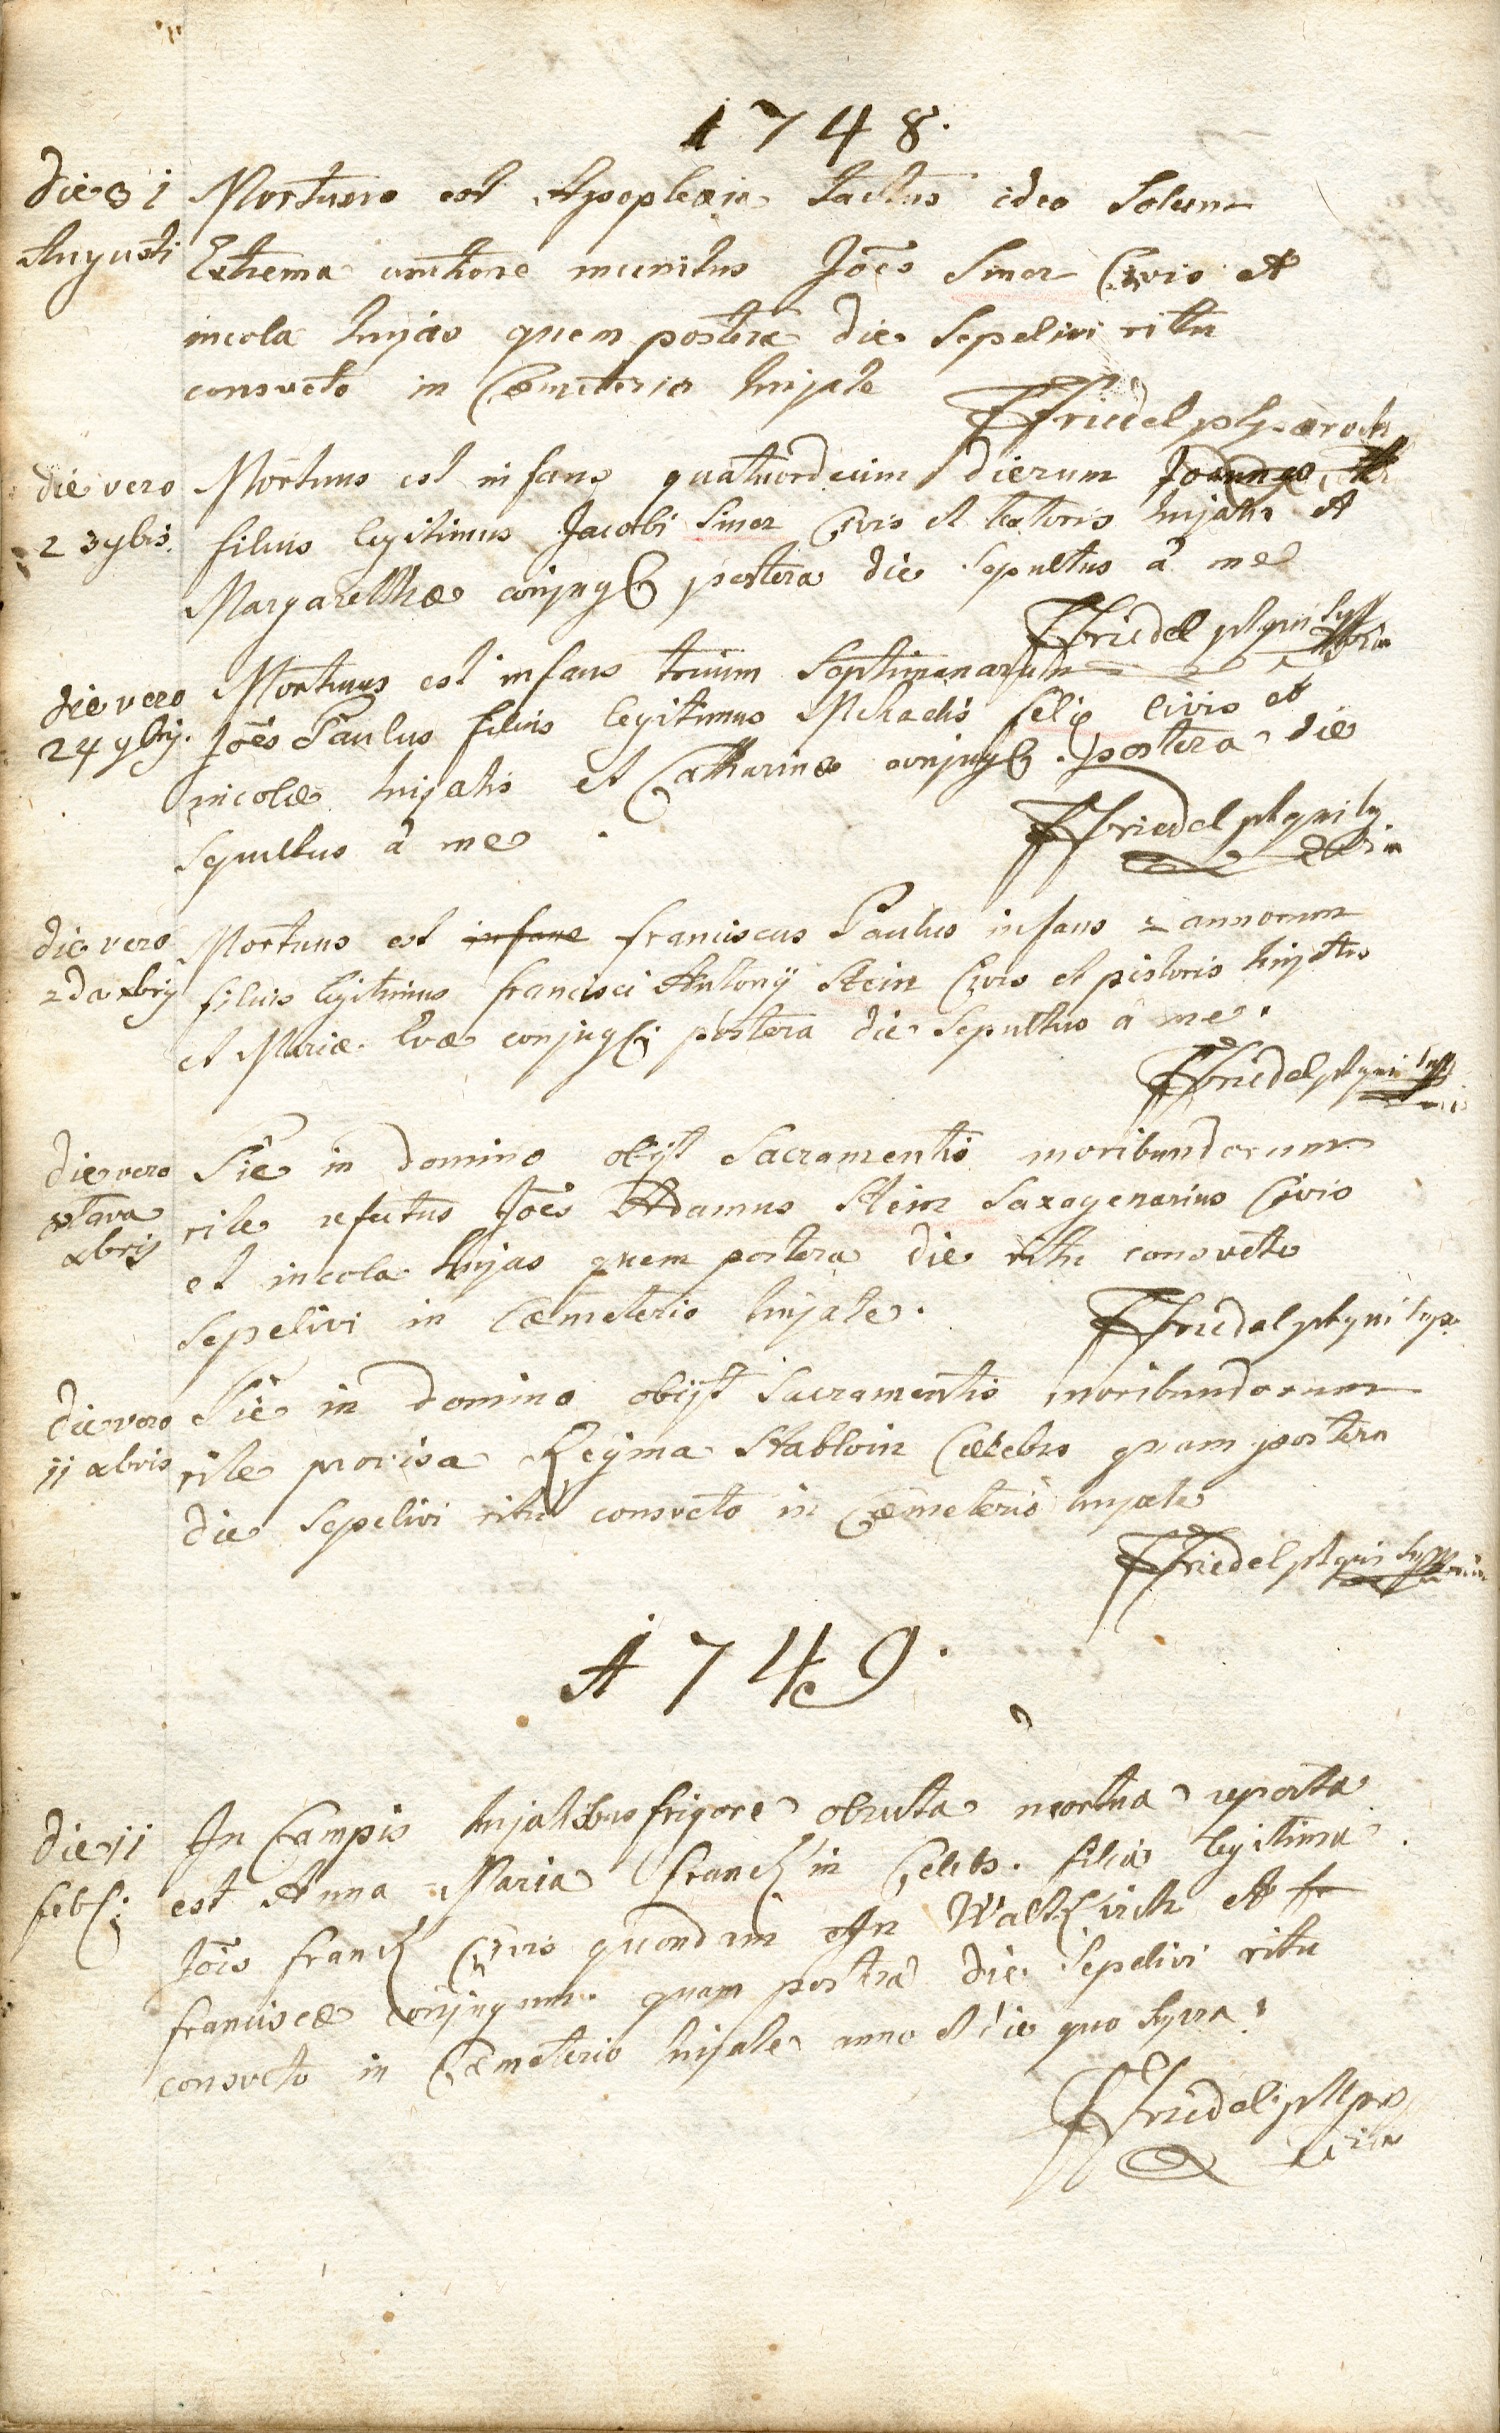 1748.
die 31 Mortuus est Apoplexia tactus ideo Solum
Augusti Extrema unctione munitus Joēs Siner Civis et
incola hujas quem postera die Sepelivi ritu
consveto in Cœmeterio hujate
FFriedel
die vero Mortuus est infans quatuordecim dierum Joannes
23 9bis. filius legitimus Jacobi Siner Civis et textoris hujatis et
Margarethæ conjug postera die Sepultus à me
FFriedel
die vero Mortuus est infans trium Septimanarum
24 9bris. Joēs Paulus filius legitimus Michaelis civis et
incolæ hujatis et Catharinæ conjug. postera die
Sepultus à me
FFriedel
die vero Mortuus est infans franciscus Paulus infans 2 annorum
2da xbris filius legitimus francisci Antonij Stein Civis et pistoris hujatis
et Mariæ Evæ conjug postera die Sepultus à me.
FFriedel
die vero Pie in domino obijt Sacramentis moribundorum
octava rite refectus Joēs Adamus Stein Saxagenarius Civis
xbris et incola hujas quem postera die ritu consveto
Sepelivi in Cœmeterio hujate.
FFriedel
die vero Pie in domino obijt Sacramentis moribundorum
11 xbris rite provisa Regina Cœlebs quam postera
die Sepelivi ritu consveto in Cœmeterio hujate
FFriedel
A 1749.
die 11 In Campis hujatibus frigore obruta mortua reperta
feb est Anna Maria franckin Celebs. filia legitima
Jōis franck Civis quondam in Waltkirch et fr
franciscæ conjugum quam postera die Sepelivi ritu
consveto in Cœmeterio hujate anno et die quo supra.
FFriedel